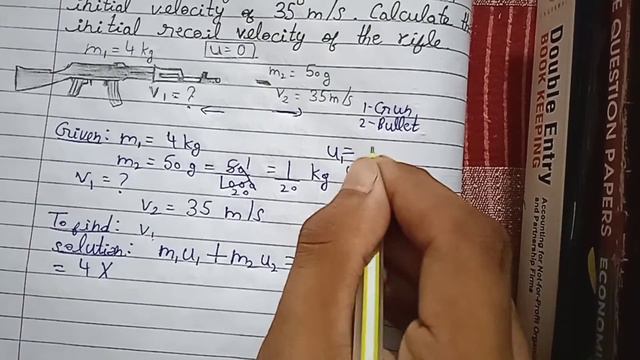 initial velocity of 35 m/s. Calculate the
initial recoil velocity of the rifle
m₁ = 4 kg
u = 0
m₂ = 50g
v₁ = ?
v₂ = 35m/s
1-Gun
2-Bullet
Given: m₁ = 4 kg
u₁ =
m₂ = 50 g = 50/1000 = 1/20 kg
v₁ = ?
v₂ = 35 m/s
To find: v₁
solution: m₁u₁ + m₂u₂ =
= 4 X
Double Entry
BOOK KEEPING
Accounting for Not-for-Profit
and Partnership Firms
QUESTION PAPERS
ECONOM